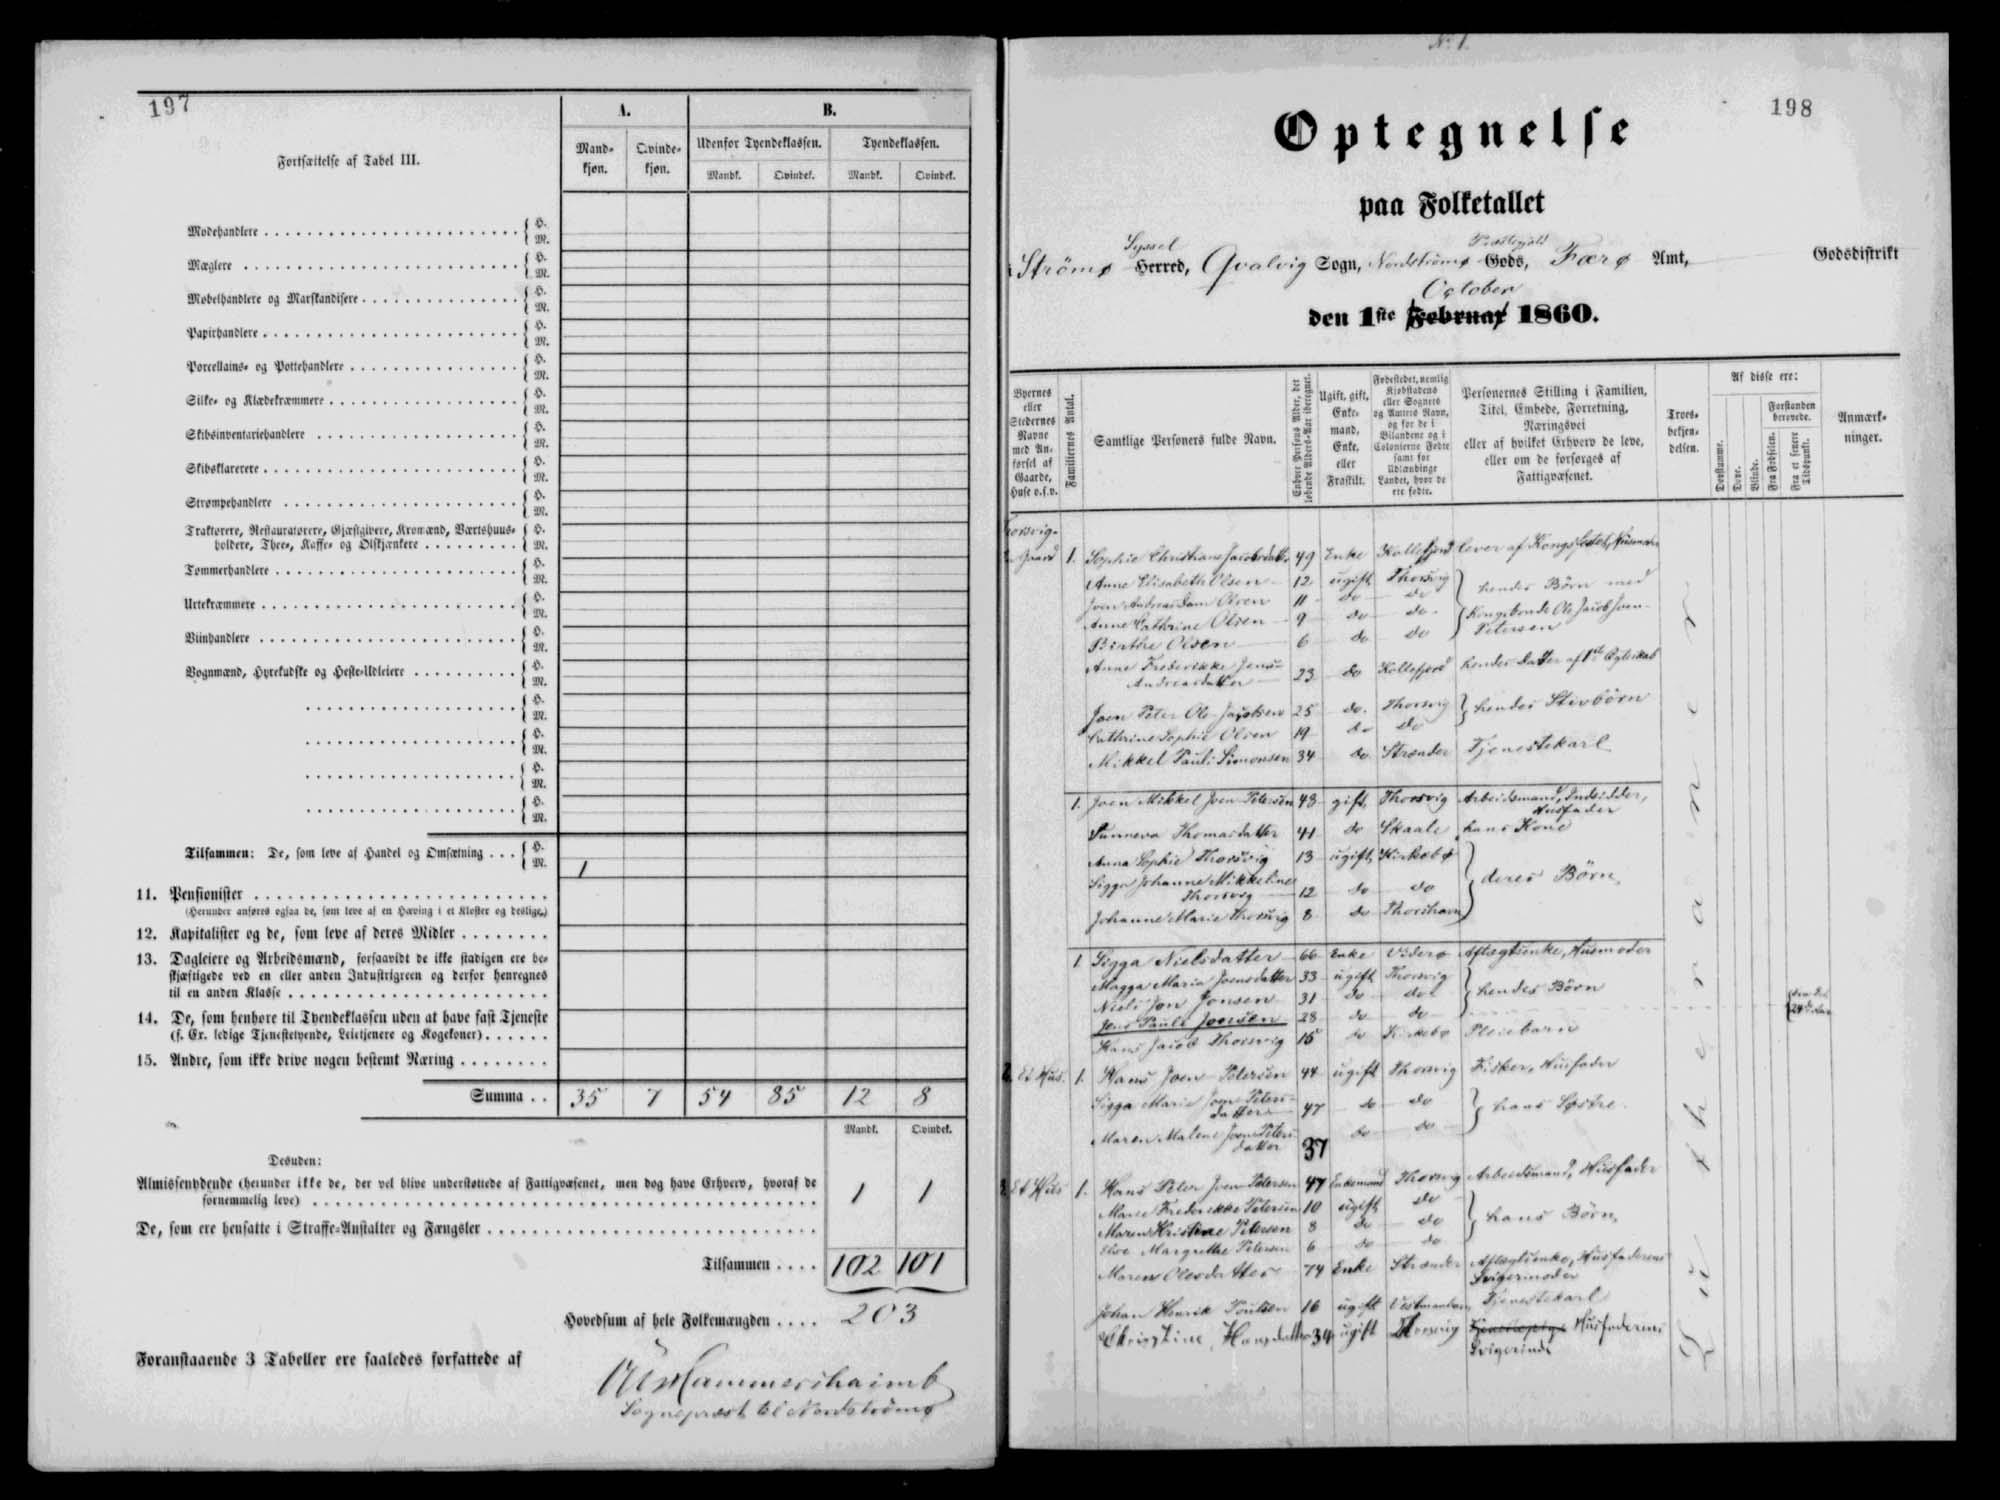 197
Fortsættelse af Tabel III.
A.
B.
Mand-
kjøn.
Qvinde-
kjøn.
Udenfor Tyendeklassen.
Tyendeklassen.
Mandk.
Qvindek.
Mandk.
Qvindek.
Modehandlere { H. M.
Mæglere { H. M.
Møbelhandlere og Marskandisere { H. M.
Papirhandlere { H. M.
Porcellains- og Pottehandlere { H. M.
Silke- og Klædekræmmere { H. M.
Skibsinventariehandlere { H. M.
Skibsklarerere { H. M.
Strømpehandlere { H. M.
Traktører, Restauratører, Gjæstgivere, Kromænd, Værtshuus-
holdere, Thee-, Kaffe- og Ølskjænkere { H. M.
Tømmerhandlere { H. M.
Urtekræmmere { H. M.
Viinhandlere { H. M.
Vognmænd, Hyrekudske og Heste-Udleiere { H. M.
{ H. M.
{ H. M.
{ H. M.
{ H. M.
Tilsammen: De, som leve af Handel og Omsætning . . . { H. M. 1
11. Pensionister
(Herunder anføres ogsaa de, som leve af en Hæving i et Kloster og deslige.)
12. Kapitalister og de, som leve af deres Midler
13. Dagleiere og Arbeidsmænd, forsaavidt de ikke stadigen ere be-
skjæftigede ved en eller anden Industrigreen og derfor henregnes
til en anden Klasse
14. De, som henhøre til Tyendeklassen uden at have fast Tjeneste
(f. Ex. ledige Tjenestetyende, Leietjenere og Kogekoner)
15. Andre, som ikke drive nogen bestemt Næring
Summa . . 35 7 54 85 12 8
Mandk. Qvindek.
Desuden:
Almissenydende (herunder ikke de, der vel blive understøttede af Fattigvæsenet, men dog have Erhverv, hvoraf de
fornemmelig leve) 1 1
De, som ere hensatte i Straffe-Anstalter og Fængsler
Tilsammen . . . . 102 101
Hovedsum af hele Folkemængden . . . . 203
Foranstaaende 3 Tabeller ere saaledes forfattede af
Hammershaimb
Sognepræst til Nordstrømø
No 1.
198
Optegnelse
paa Folketallet
Syssel
Præstegjeld
i Strömø Herred, Qvalvig Sogn, Nordströmø Gods, Færø Amt, Godsdistrikt
October
den 1ste Februar 1860.
Byernes
eller
Stedernes
Navne
med An-
førsel af
Gaarde,
Huse o.s.v.
Familiernes Antal.
Samtlige Personers fulde Navn.
Enhver Persons Alder, det
løbende Alders-Aar iberegnet.
Ugift, gift,
Enke-
mand,
Enke,
eller
Fraskilt.
Fødestedet, nemlig
Kjøbstadens
eller Sognets
og Amtets Navn,
og for de i
Bilandene og i
Colonierne Fødte
samt for
Udlændinge
Landet, hvor de
ere fødte.
Personernes Stilling i Familien,
Titel, Embede, Forretning,
Næringsvei
eller af hvilket Erhverv de leve,
eller om de forsørges af
Fattigvæsenet.
Troes-
bekjen-
delsen.
Af disse ere:
Døvstumme.
Døve.
Blinde.
Forstanden
berøvede.
Fra Fødselen.
Fra et senere
Tidspunkt.
Anmærk-
ninger.
Thorsvig.
Gaard 1. Sophie Christiane Jacobsdatter 49 Enke Kollefjord lever af Kongsfæste, Husmoder
Anne Elisabeth Olsen 12 ugift Thorsvig } hendes Börn med
Joen Andreas Dam Olsen 11 do do
Anne Cathrine Olsen 9 do do { Kongsbonde Ole Jacob Joen-
Birthe Olsen 6 do do Petersen
Anne Frederikke Jens-
Andreasdatter 23 do Kollefjord hendes Datter af 1ste Ægteskab
Joen Peter Ole Jacobsen 25 do. Thorsvig } hendes Stivbörn
Cathrine Sophie Olsen 19 do do
Mikkel Pauli Simonsen 34 do Strænder Tjenestekarl
1. Joen Mikkel Joen Petersen 43 gift Thorsvig Arbeidsmand, Indsidder,
Husfader
Sunneva Thomasdatter 41 do Skaale hans Kone
Anna Sophie Thorsvig 13 ugift Kirkebø
Sigga Johanne Mikkeline
Thorsvig 12 do do } deres Börn
Johanne Marie Thorsvig 8 do Thorshavn
1 Sigga Nielsdatter 66 Enke Viderø Aftægtsenke, Husmoder
Magga Maria Joensdatter 33 ugift Thorsvig
Niels Jon Jonsen 31 do do } hendes Börn
Jens Pauli Joensen 28 do do
Hans Jacob Thorsvig 15 do Kirkebø Pleiebarn
2. Et Hus. 1. Hans Joen Petersen 44 ugift Thorsvig Fisker, Husfader
Sigga Marie Joen Peters-
datter 47 do do } hans Søstre.
Maren Malene Joen Peters-
datter 37 do do
3. Et Hus 1. Hans Peter Joen Petersen 47 Enkemand Thorsvig Arbeidsmand, Husfader
Marie Frederikke Petersen 10 ugift do
Maren Kristine Petersen 8 do do } hans Börn,
Margrethe Petersen 6 do do
Maren Olesdatter 74 Enke Strænder Aftægtsenke, Husfaderens
Svigermoder
Johan Henrik Poulsen 16 ugift Vestmanhavn Tjenestekarl
Christine Hansdatter 34 ugift Thorsvig Tjenestepige Husfaderens
Svigerinde
Lutheraner